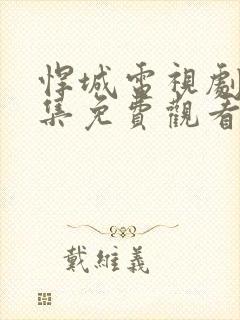 悍城電視劇
集免費觀看
戴維義